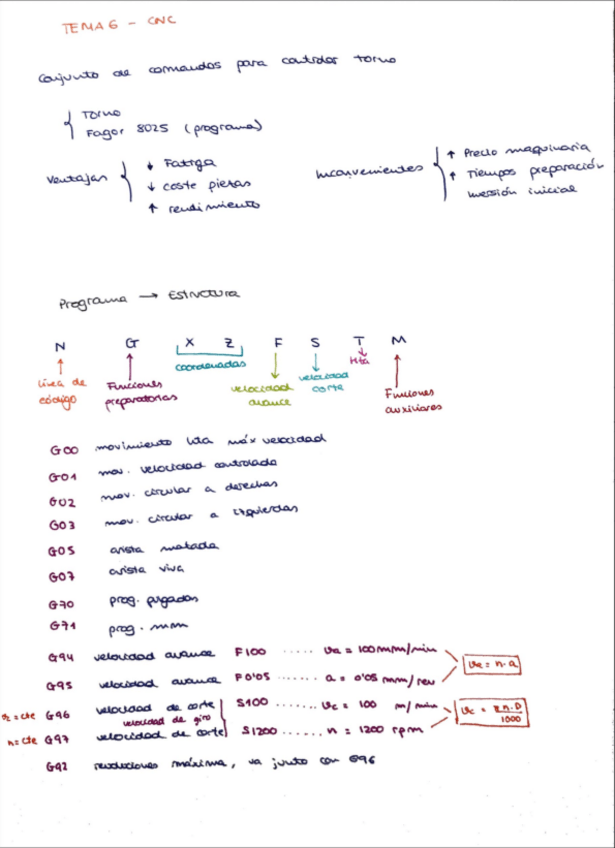 TEMA 6 - CNC
Conjunto de comandos para controlar torno
Torno
Fagor 8025 (programa)
Ventajas
↓ Fatiga
↓ coste piezas
↑ rendimiento
Inconvenientes
↑ Precio maquinaria
↑ Tiempos preparación
Inversión inicial
Programa → Estructura
N G X Z F S T M
línea de código
Funciones preparatorias
coordenadas
velocidad avance
velocidad corte
Hta
Funciones auxiliares
G00 movimiento hta máx velocidad
G01 mov. velocidad controlada
G02 mov. circular a derechas
G03 mov. circular a izquierdas
G05 arista matada
G07 arista viva
G70 prog. pulgadas
G71 prog. mm
G94 velocidad avance F100 ...... va = 100mm/min
G95 velocidad avance F0'05 ...... a = 0'05 mm/rev
va = n·a
vc=cte G96 velocidad de corte S100 ...... vc = 100 m/min
velocidad de giro
n=cte G97 velocidad de corte S1200 ....... n = 1200 rpm
vc = πn·D/1000
G92 revoluciones máxima, va junto con G96